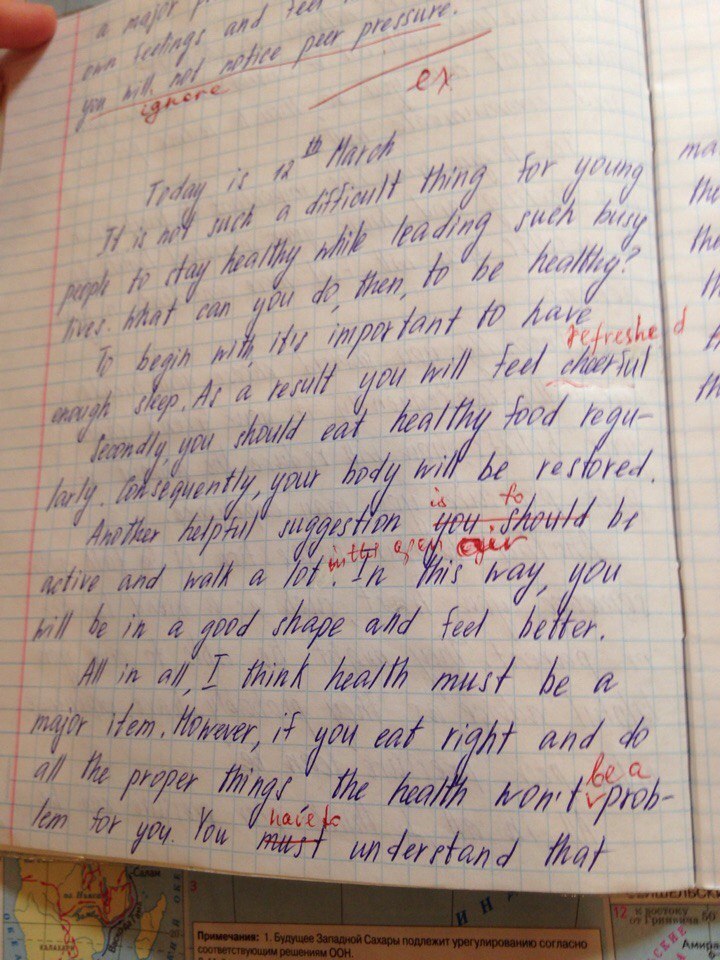 a major
own feelings and feel
you will not notice peer pressure.
ignore
ex
Today is 12th March
It is not such a difficult thing for young
people to stay healthy while leading such busy
lives. What can you do, then, to be healthy?
To begin with, it's important to have
refreshed
enough sleep. As a result you will feel cheerful
Secondly, you should eat healthy food regu-
larly. Consequently, your body will be restored.
is to
Another helpful suggestion you should be
in the open air
active and walk a lot. In this way, you
will be in a good shape and feel better.
All in all, I think health must be a
major item. However, if you eat right and do
all the proper things the health won't prob-
be a
lem for you. You must understand that
have to
Салан
КАЛАХАРИ
3
ИНД
Примечания: 1. Будущее Западной Сахары подлежит урегулированию согласно
соответствующим решениям ООН.
СЕЙШЕЛЬСКИ
12 к востоку
от Гринвича 50
Амира
СКИЕ
ma
the
the
th
t
th